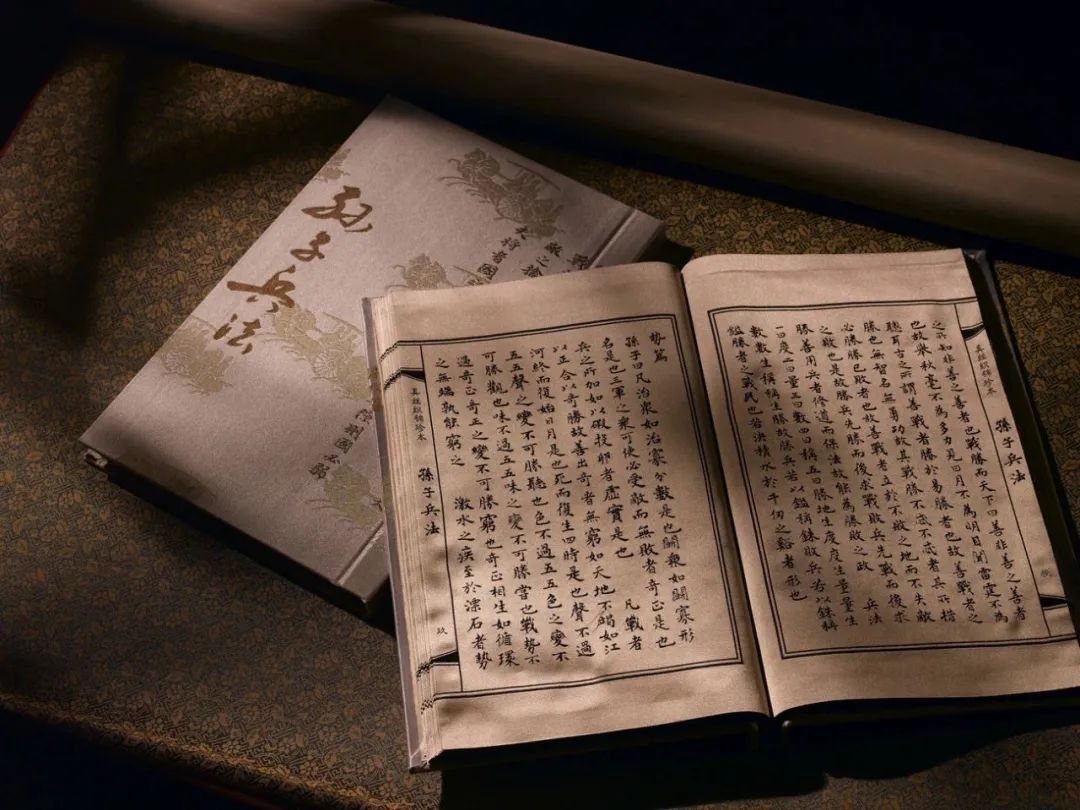 孫子兵法
真絲織錦珍本
孫子兵法
之所知非善之善者也戰勝而天下曰善非善之善者
也故舉秋毫不為多力見日月不為明目聞雷霆不為
聰耳古之所謂善戰者勝於易勝者也故善戰者之
勝也無智名無勇功故其戰勝不忒不忒者其所措
必勝勝已敗者也故善戰者立於不敗之地而不失敵
之敗也是故勝兵先勝而後求戰敗兵先戰而後求
勝善用兵者修道而保法故能為勝敗之政 兵法
一曰度二曰量三曰數四曰稱五曰勝地生度度生量量生
數數生稱稱生勝故勝兵若以鎰稱銖敗兵若以銖稱
鎰勝者之戰民也若決積水於千仞之谿者形也
勢篇
孫子曰凡治眾如治寡分數是也鬪眾如鬪寡形
名是也三軍之眾可使必受敵而無敗者奇正是也
兵之所加如以碬投卵者虛實是也 凡戰者
以正合以奇勝故善出奇者無窮如天地不竭如江
河終而復始日月是也死而復生四時是也聲不過
五五聲之變不可勝聽也色不過五五色之變不
可勝觀也味不過五五味之變不可勝嘗也戰勢不
過奇正奇正之變不可勝窮也奇正相生如循環
之無端孰能窮之 激水之疾至於漂石者勢
真絲織錦珍本
孫子兵法
玖